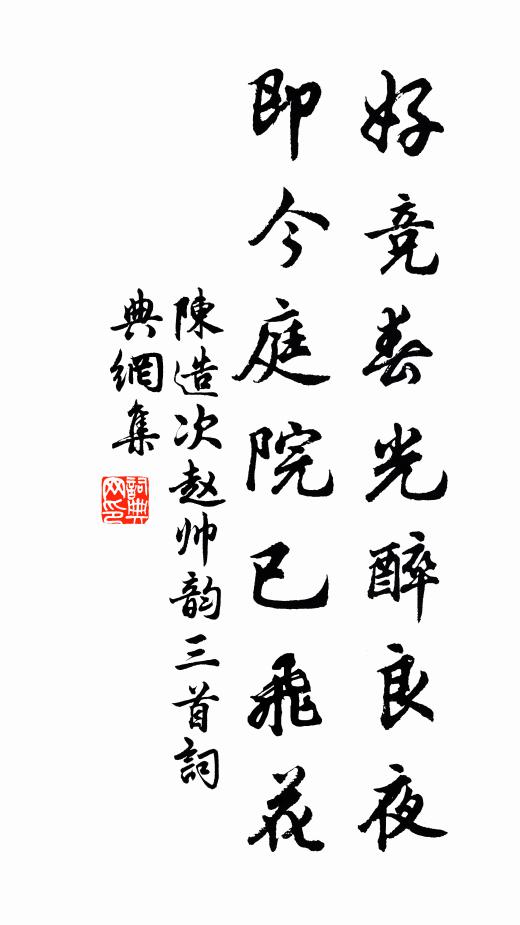 好竞春光醉良夜
即今庭院已飛花
陳造次赵帅韵三首詞
典網集
詞典
网印